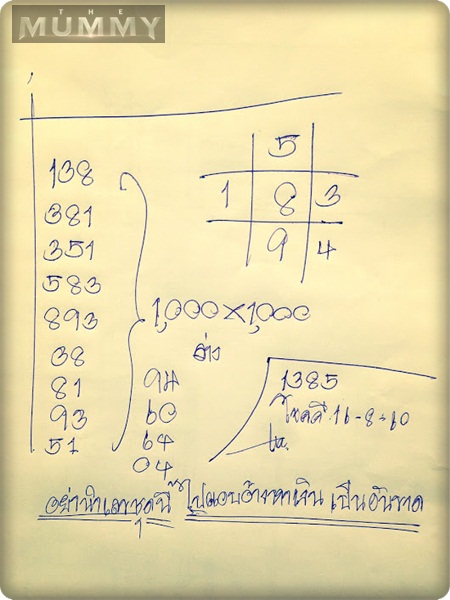 THE
MUMMY
5
1 8 3
9 4
138
381
351
583
893
38
81
93
51
1,000×1,000
ล่าง
94
60
64
04
1385
โชคดี 16-8-60
อย่านำเลขชุดนี้ไปแอบอ้างหาเงิน เป็นอันขาด